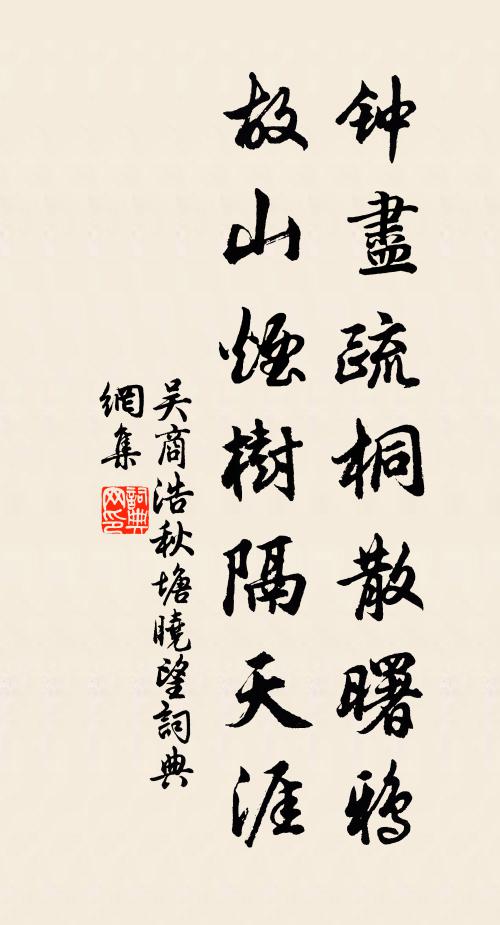 钟盡疏桐散曙鸦
故山煙樹隔天涯
吴商浩秋塘曉望詞典
網集
詞典网印